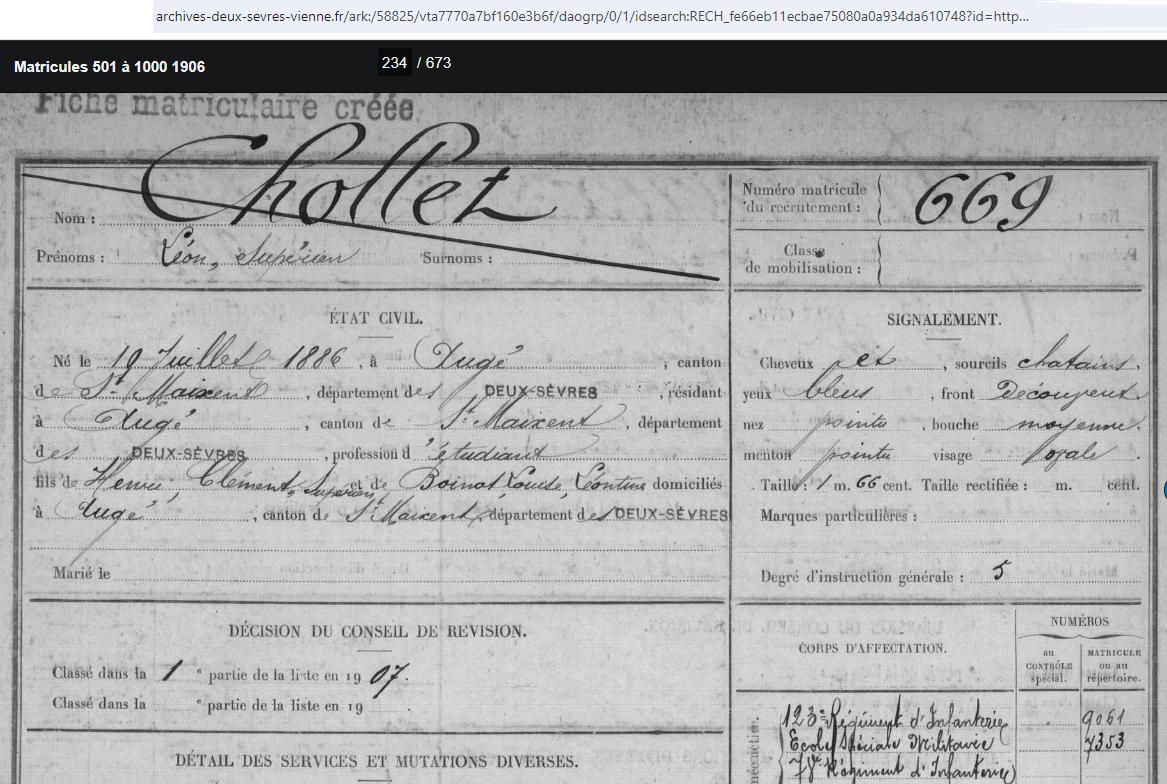 archives-deux-sevres-vienne.fr/ark:/58825/vta7770a7bf160e3b6f/daogrp/0/1/idsearch:RECH_fe66eb11ecbae75080a0a934da610748?id=http...
Matricules 501 à 1000 1906
234 / 673
Fiche matriculaire créée
Nom : Chollet
Prénoms : Léon, Supérien Surnoms :
Numéro matricule du recrutement : 669
Classe de mobilisation :
ÉTAT CIVIL.
Né le 19 Juillet 1886, à Augé, canton
de St Maixent, département des DEUX-SÈVRES, résidant
à Augé, canton de St Maixent, département
des DEUX-SÈVRES, profession d'étudiant
fils de Henri, Clément, Supérien, et de Boinot Louise, Léontine domiciliés
à Augé, canton de St Maixent, département des DEUX-SÈVRES
Marié le
SIGNALEMENT.
Cheveux et, sourcils chatains.
yeux bleus, front Découvert
nez pointu, bouche moyenne.
menton pointu visage ovale
Taille : 1 m. 66 cent. Taille rectifiée : m. cent.
Marques particulières :
Degré d'instruction générale : 5
DÉCISION DU CONSEIL DE REVISION.
Classé dans la 1 e partie de la liste en 1907.
Classé dans la e partie de la liste en 19
DÉTAIL DES SERVICES ET MUTATIONS DIVERSES.
CORPS D'AFFECTATION.
NUMÉROS
au CONTRÔLE spécial.
MATRICULE ou au répertoire.
123e Régiment d'Infanterie 9061
Ecole Spéciale Militaire 7353
Régiment d'Infanterie